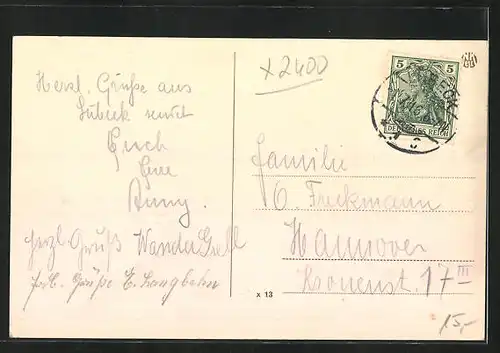 Herzl. Grüße aus
Lübeck sendet
Euch
Eure
Anny.
herzl. Gruß Wanda Grell
frdl. Grüße E. Langbehn
x 2400
5 5
DEUTSCHES REICH
Familie
C. Freckmann
Hannover
Kronenst. 17 III
x 13
15,-